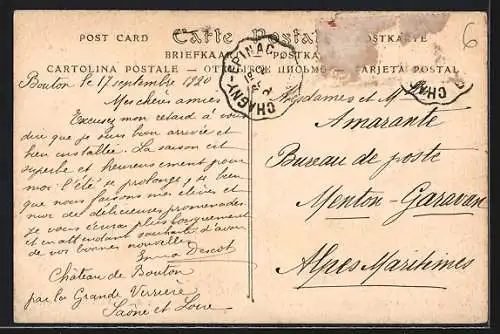 POST CARD Carte Postale POSTKARTE
BRIEFKAART
CARTOLINA POSTALE — TARJETA POSTAL
6
CHAGNY-EPINAC
CHAGNY
Bouton le 17 septembre 1920
Mes chères amies
Excusez mon retard à vous
dire que je suis bien arrivée et
bien installée. La saison est
superbe et heureusement pour
moi l'été se prolonge, si bien
que nous faisons mes élèves et
moi des délicieuses promenades
Je vous écrirai plus longuement
et en attendant souhaite d'avoir
de vos bonnes nouvelles
Emma Descot
Château de Bouton
par la Grande Verrière
Saône et Loire
Mesdames et Mlle
Amarante
Bureau de poste
Menton-Garavan
Alpes Maritimes